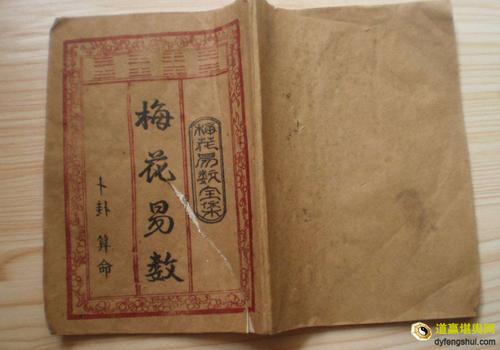 梅花易数全集
梅花易数
卜卦 算命
道赢堪舆网
dyfengshui.com